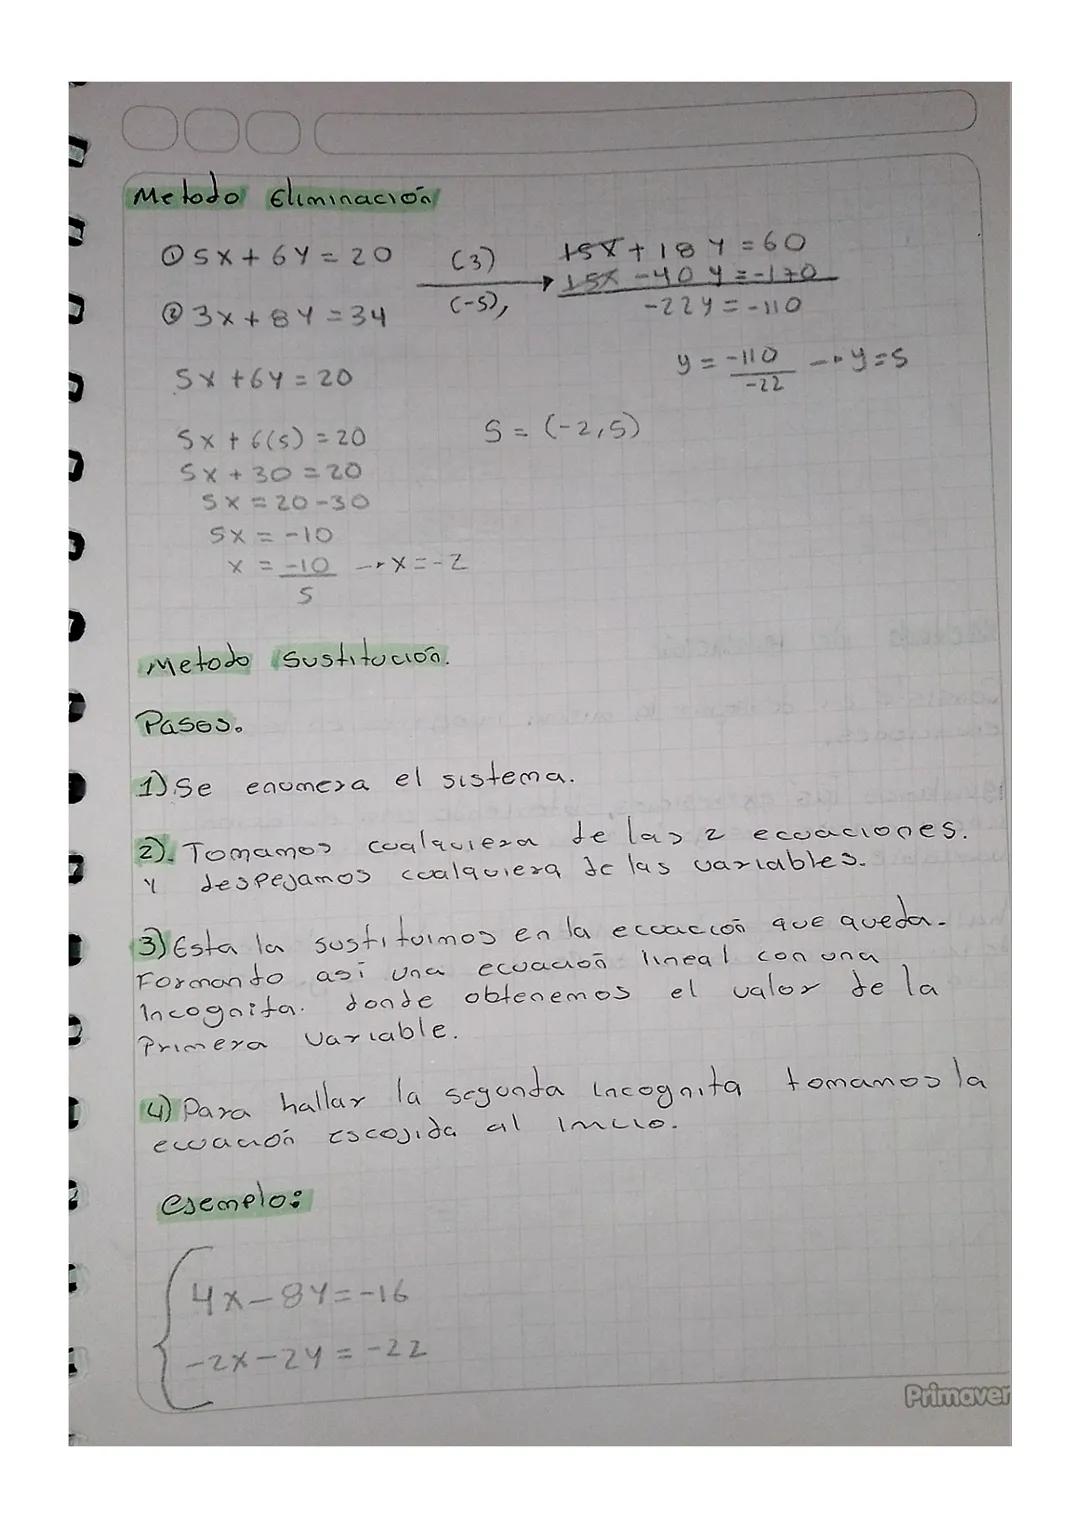 Metodo Eliminación
① 5x + 6y = 20 (3) 15x + 18y = 60
② 3x + 8y = 34 (-5), 15x - 40y = -170
-22y = -110
5x + 6y = 20
y = -110/-22 → y = 5
5x + 6(5) = 20
S = (-2,5)
5x + 30 = 20
5x = 20 - 30
5x = -10
x = -10/5 → x = -2
Metodo Sustitución.
Pasos.
1) Se enumera el sistema.
2). Tomamos cualquiera de las 2 ecuaciones.
y despejamos cualquiera de las variables.
3) Esta la sustituimos en la ecuacción que queda.
Formando así una ecuación lineal con una
incognita. donde obtenemos el valor de la
Primera variable.
4) Para hallar la segunda incognita tomamos la
ecuación escojida al inicio.
ejemplo:
4x - 8y = -16
-2x - 2y = -22
Primaver